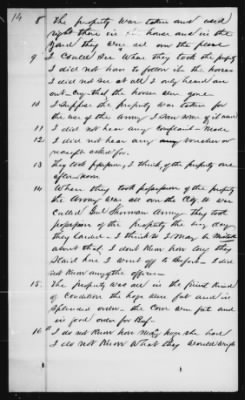 14
8 The property was taken and used
right there in the house and in the
yard they were all on the place
9 I could see when they took the property
I did not have to follow it the horses
I did not see at all I only heard an
out cry that the horses were gone
10 I suppose the property was taken for
the use of the Army I seen some of it used
11 I did not hear any complaint made
12 I did not hear any voucher or
receipt asked for
13 They took possession, I think, of the property one
afternoon
14 When they took possession of the property
the Army was all over the it was
called Genl Sherman Army They took
possession of the property the day
they landed I think I may be
about that, I dont know how long they
staid here I went off to before I did
not know any of the officers
15. The property was all in the finest kind
of condition the hogs were fat and in
splendid order the corn was put and
in good order for
16 I do not know how many hogs she had
I do not know what they would weigh